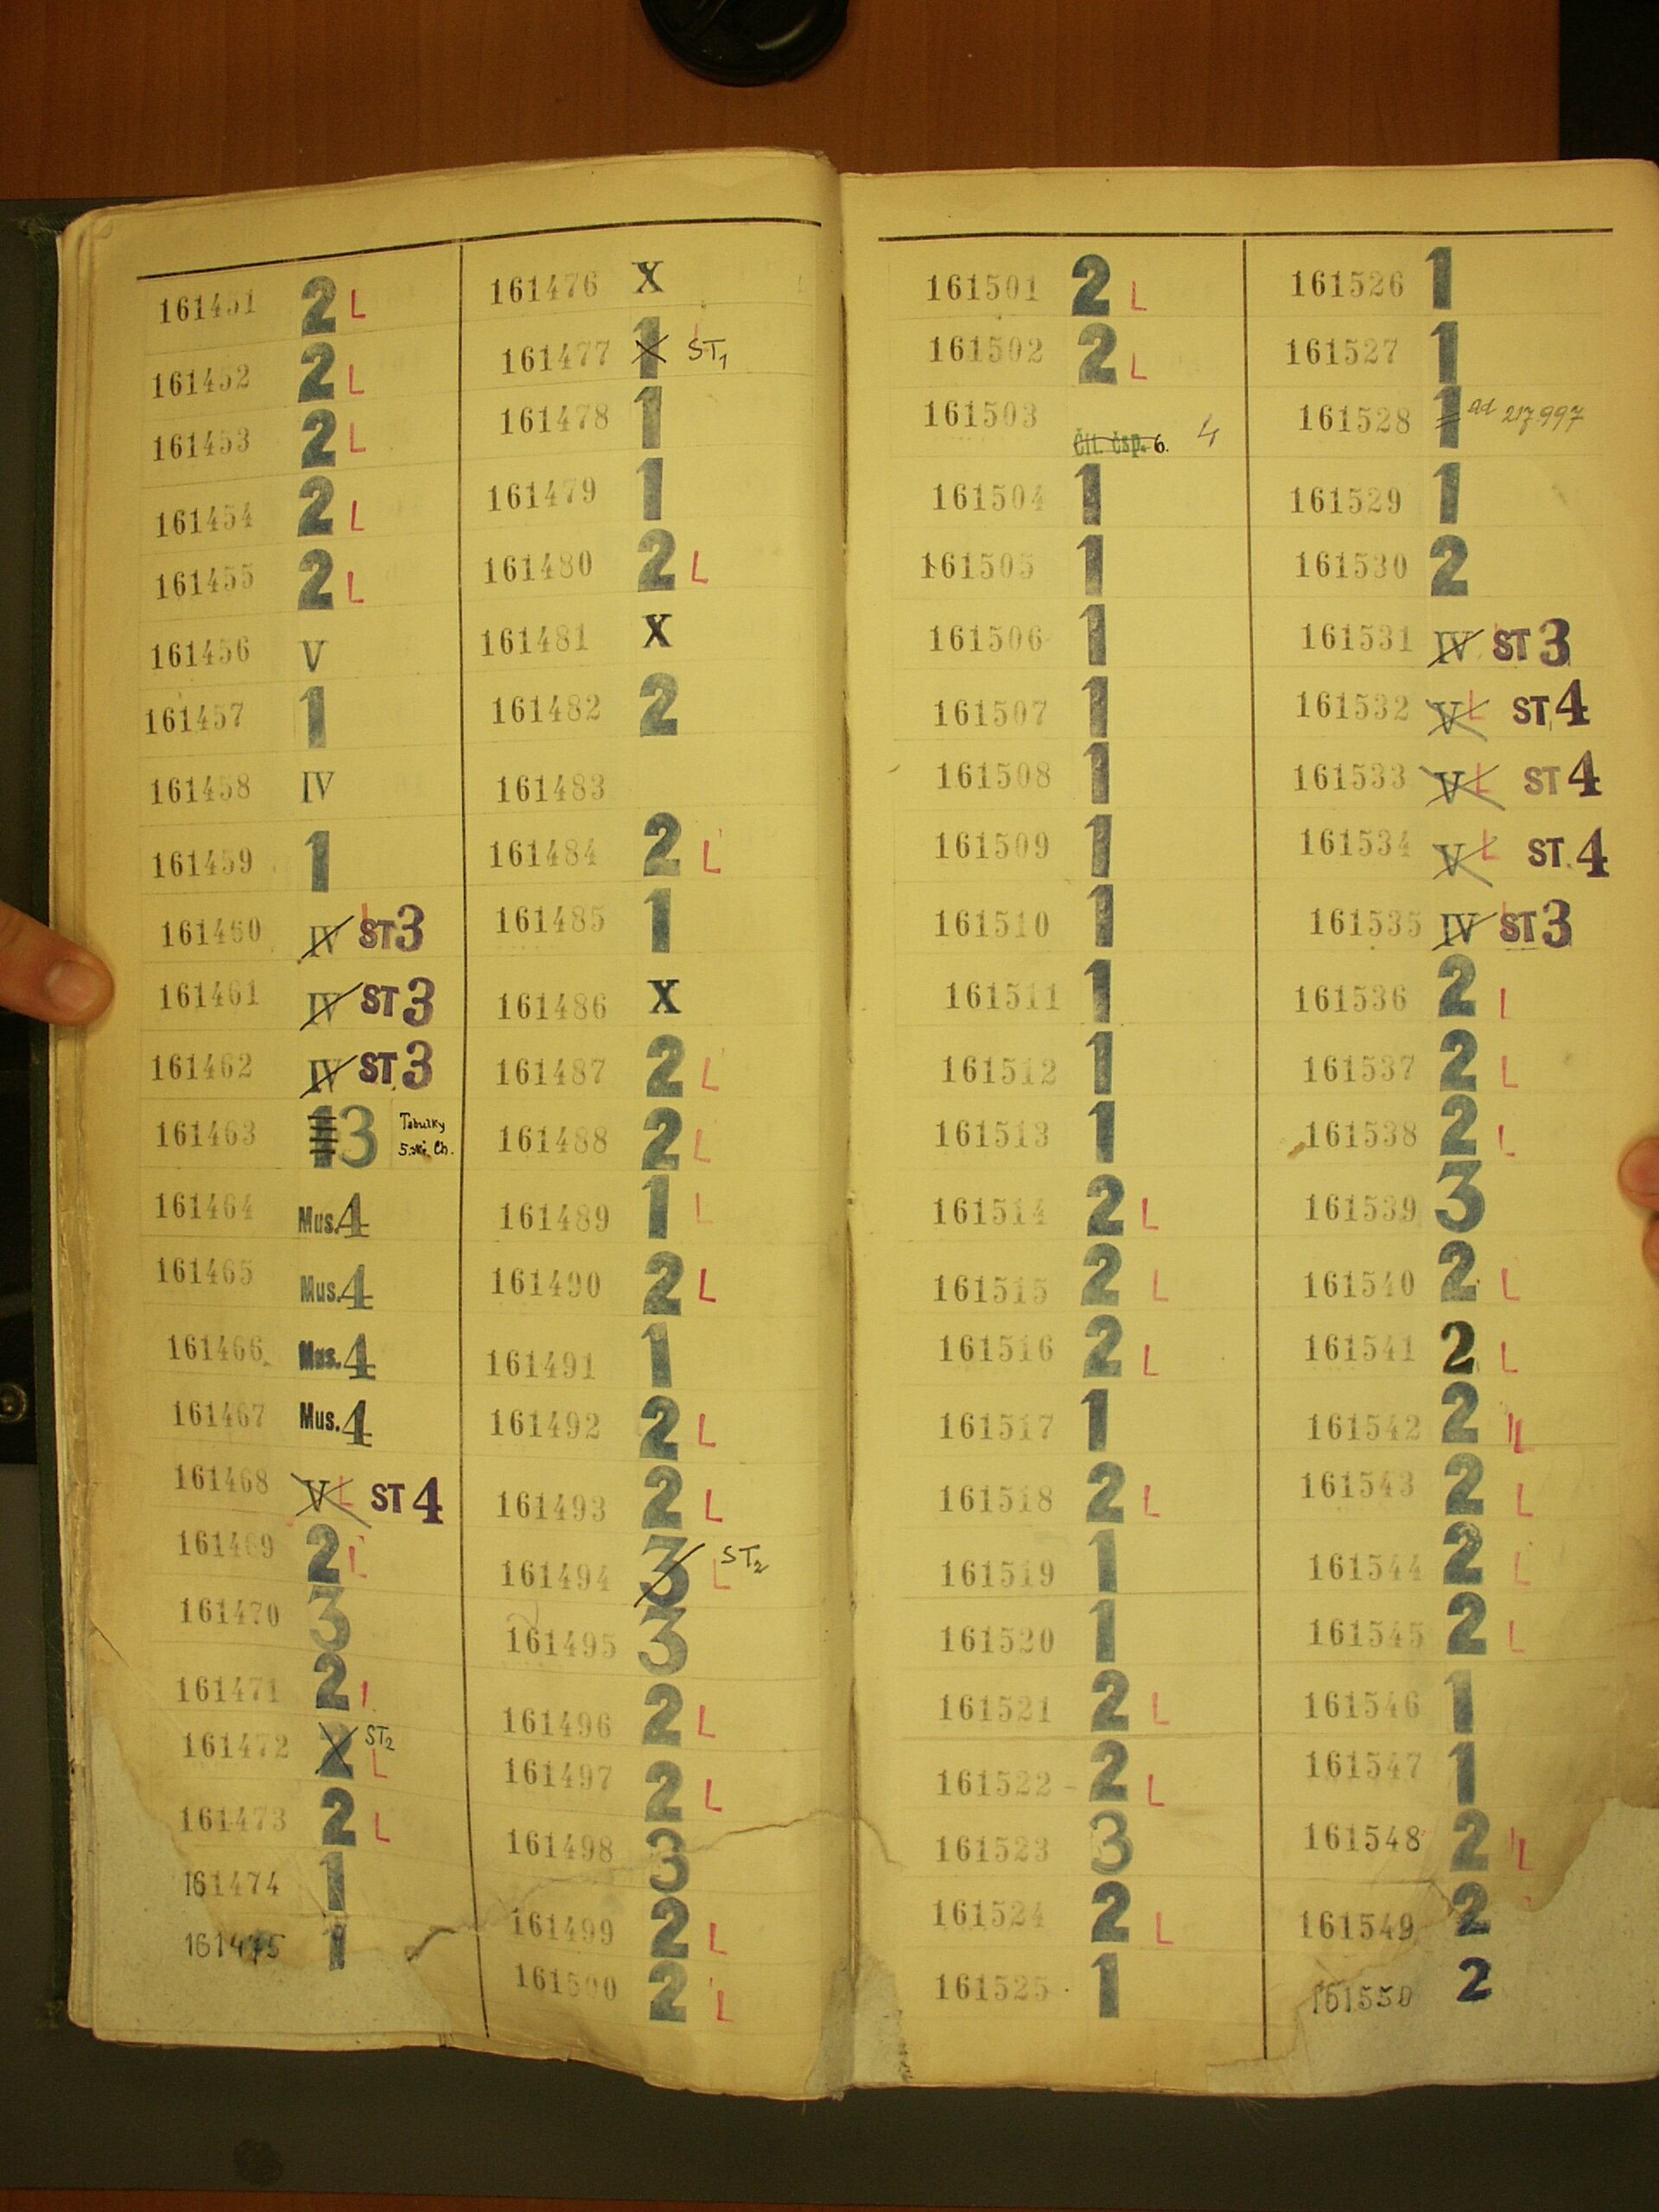 161451 2 L
161452 2 L
161453 2 L
161454 2 L
161455 2 L
161456 V
161457 1
161458 IV
161459 1
161460 IV ST 3
161461 IV ST 3
161462 IV ST 3
161463 1 3 Tabulky
161464 Mus. 4
161465 Mus. 4
161466 Mus. 4
161467 Mus. 4
161468 V L ST 4
161469 2 L
161470 3
161471 2 L
161472 2 L ST2
161473 2 L
161474 1
161475 1
161476 X
161477 1 ST1
161478 1
161479 1
161480 2 L
161481 X
161482 2
161483
161484 2 L
161485 1
161486 X
161487 2 L
161488 2 L
161489 1 L
161490 2 L
161491 1
161492 2 L
161493 2 L
161494 3 L ST2
161495 3
161496 2 L
161497 2 L
161498 3
161499 2 L
161500 2 L
161501 2 L
161502 2 L
161503 Čít. čsp. 6. 4
161504 1
161505 1
161506 1
161507 1
161508 1
161509 1
161510 1
161511 1
161512 1
161513 1
161514 2 L
161515 2 L
161516 2 L
161517 1
161518 2 L
161519 1
161520 1
161521 2 L
161522 2 L
161523 3
161524 2 L
161525 1
161526 1
161527 1
161528 1 ad 217.997
161529 1
161530 2
161531 IV ST 3
161532 V L ST 4
161533 V L ST 4
161534 V L ST 4
161535 IV ST 3
161536 2 L
161537 2 L
161538 2 L
161539 3
161540 2 L
161541 2 L
161542 2 L
161543 2 L
161544 2 L
161545 2 L
161546 1
161547 1
161548 2 L
161549 2
161550 2